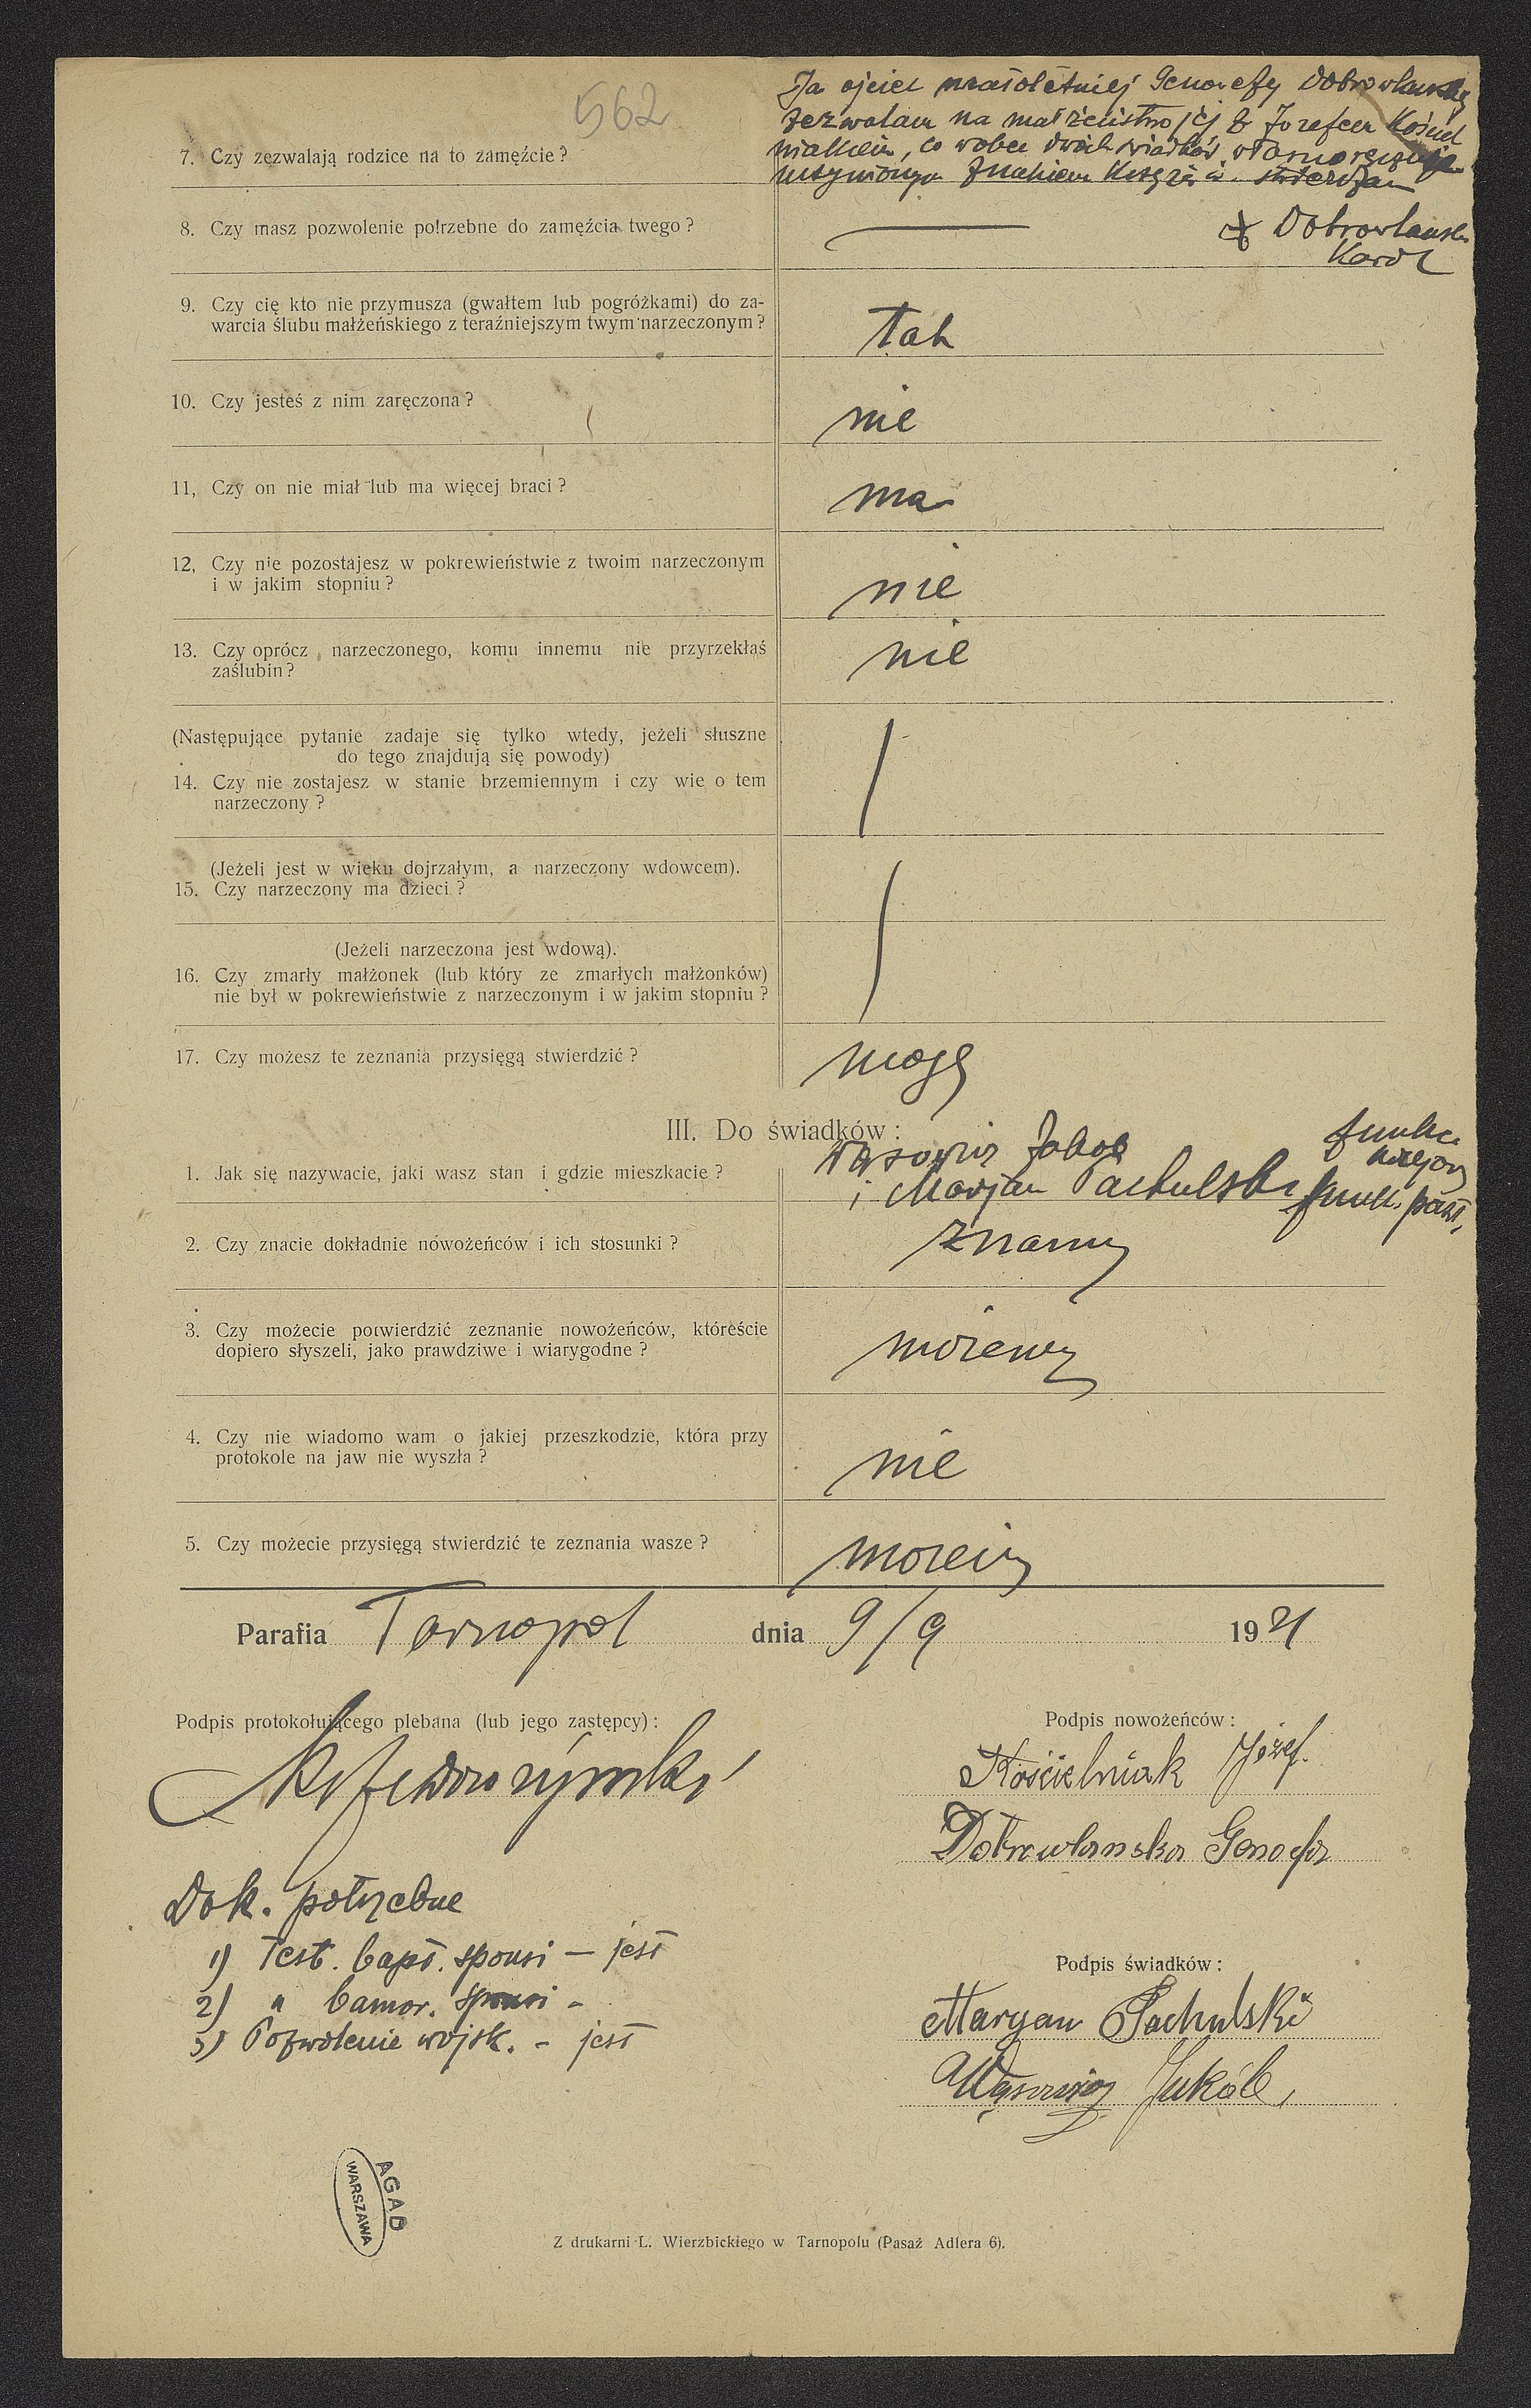 562
Ja ojciec małoletniej Genowefy Dobrowlańskiej
zezwalam na małżeństwo jej z Józefem Kościel
niakiem, co wobec dwóch świadków własnoręcznie
uczynionym znakiem krzyża stwierdzam
7. Czy zezwalają rodzice na to zamęźcie?
8. Czy masz pozwolenie potrzebne do zamęźcia twego?
+ Dobrowlański
Karol
9. Czy cię kto nie przymusza (gwałtem lub pogróżkami) do za-
warcia ślubu małżeńskiego z teraźniejszym twym narzeczonym?
tak
10. Czy jesteś z nim zaręczona?
nie
11, Czy on nie miał lub ma więcej braci?
ma
12, Czy nie pozostajesz w pokrewieństwie z twoim narzeczonym
i w jakim stopniu?
nie
13. Czy oprócz narzeczonego, komu innemu nie przyrzekłaś
zaślubin?
nie
(Następujące pytanie zadaje się tylko wtedy, jeżeli słuszne
do tego znajdują się powody)
14. Czy nie zostajesz w stanie brzemiennym i czy wie o tem
narzeczony?
(Jeżeli jest w wieku dojrzałym, a narzeczony wdowcem).
15. Czy narzeczony ma dzieci?
(Jeżeli narzeczona jest wdową).
16. Czy zmarły małżonek (lub który ze zmarłych małżonków)
nie był w pokrewieństwie z narzeczonym i w jakim stopniu?
17. Czy możesz te zeznania przysięgą stwierdzić?
mogę
III. Do świadków:
1. Jak się nazywacie, jaki wasz stan i gdzie mieszkacie?
Wąsowicz Jakob funkc. kolejowy
i Marjan Pachulski funk. państ.
2. Czy znacie dokładnie nowożeńców i ich stosunki?
znamy
3. Czy możecie potwierdzić zeznanie nowożeńców, któreście
dopiero słyszeli, jako prawdziwe i wiarygodne?
możemy
4. Czy nie wiadomo wam o jakiej przeszkodzie, która przy
protokole na jaw nie wyszła?
nie
5. Czy możecie przysięgą stwierdzić te zeznania wasze?
możemy
Parafia Tarnopol dnia 9/9 1921
Podpis protokołującego plebana (lub jego zastępcy):
Podpis nowożeńców:
Kościelniak Józef.
Dobrowlanska Genofa
Dok. potrzebne
1) Test. bapt. sponsi — jest
2) " bamor. sponsi -
3) Pozwolenie wojsk. - jest
Podpis świadków:
Maryan Pachulski
Wąsowicz Jakób,
AGAD
WARSZAWA
Z drukarni L. Wierzbickiego w Tarnopolu (Pasaż Adlera 6).